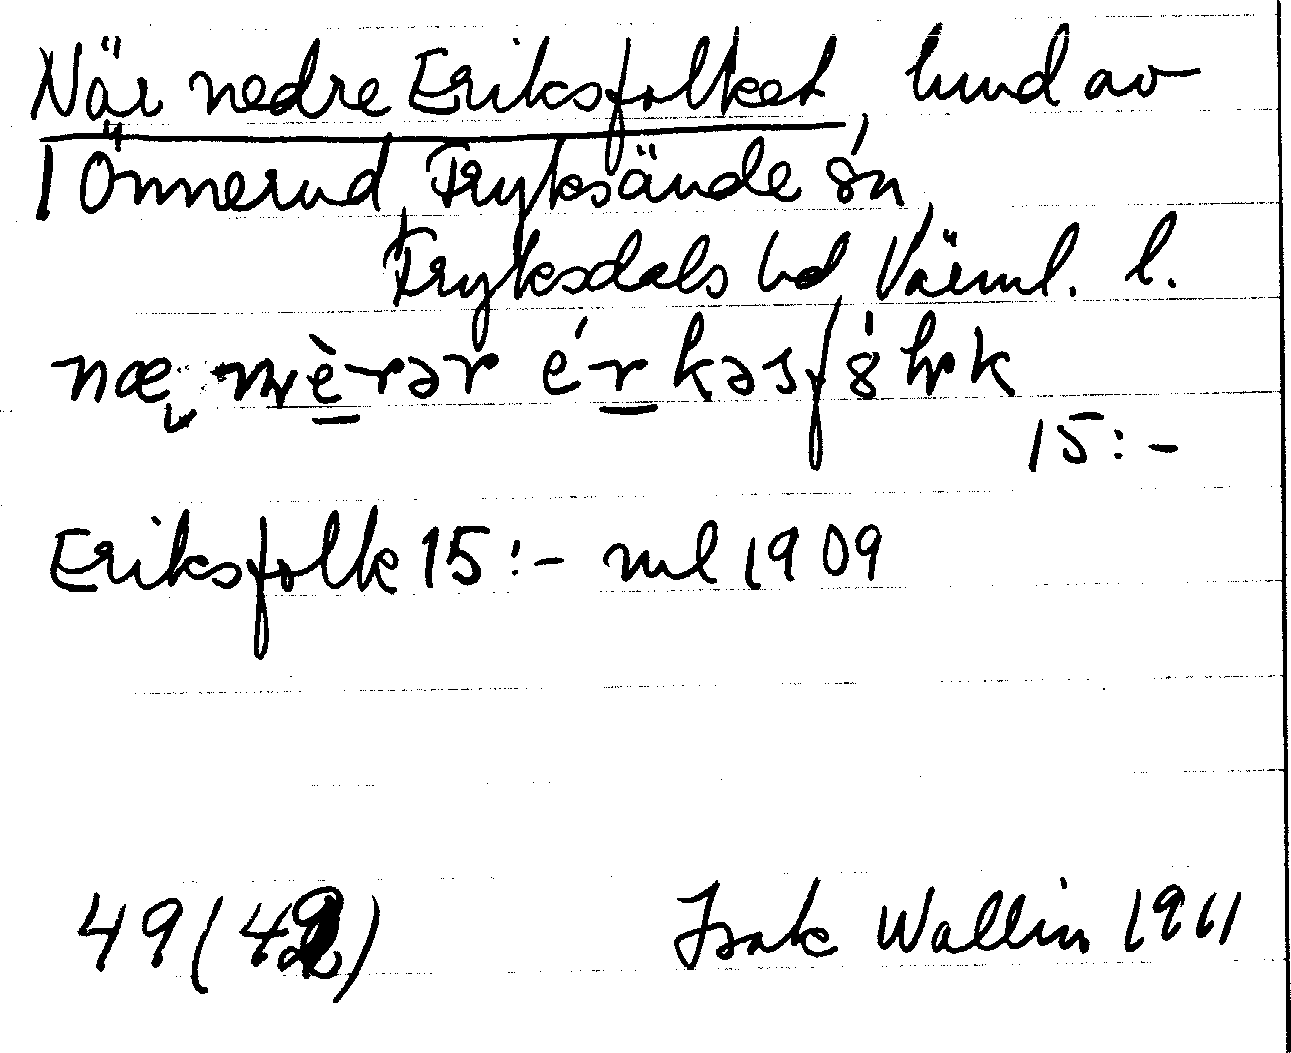 När nedre Eriksfolket hmd av
1 Önnerud, Fryksände sn,
Fryksdals hd Värml. l.
15:-
Eriksfolk 15:- ml 1909
49 (42)
Isak Wallin 1961